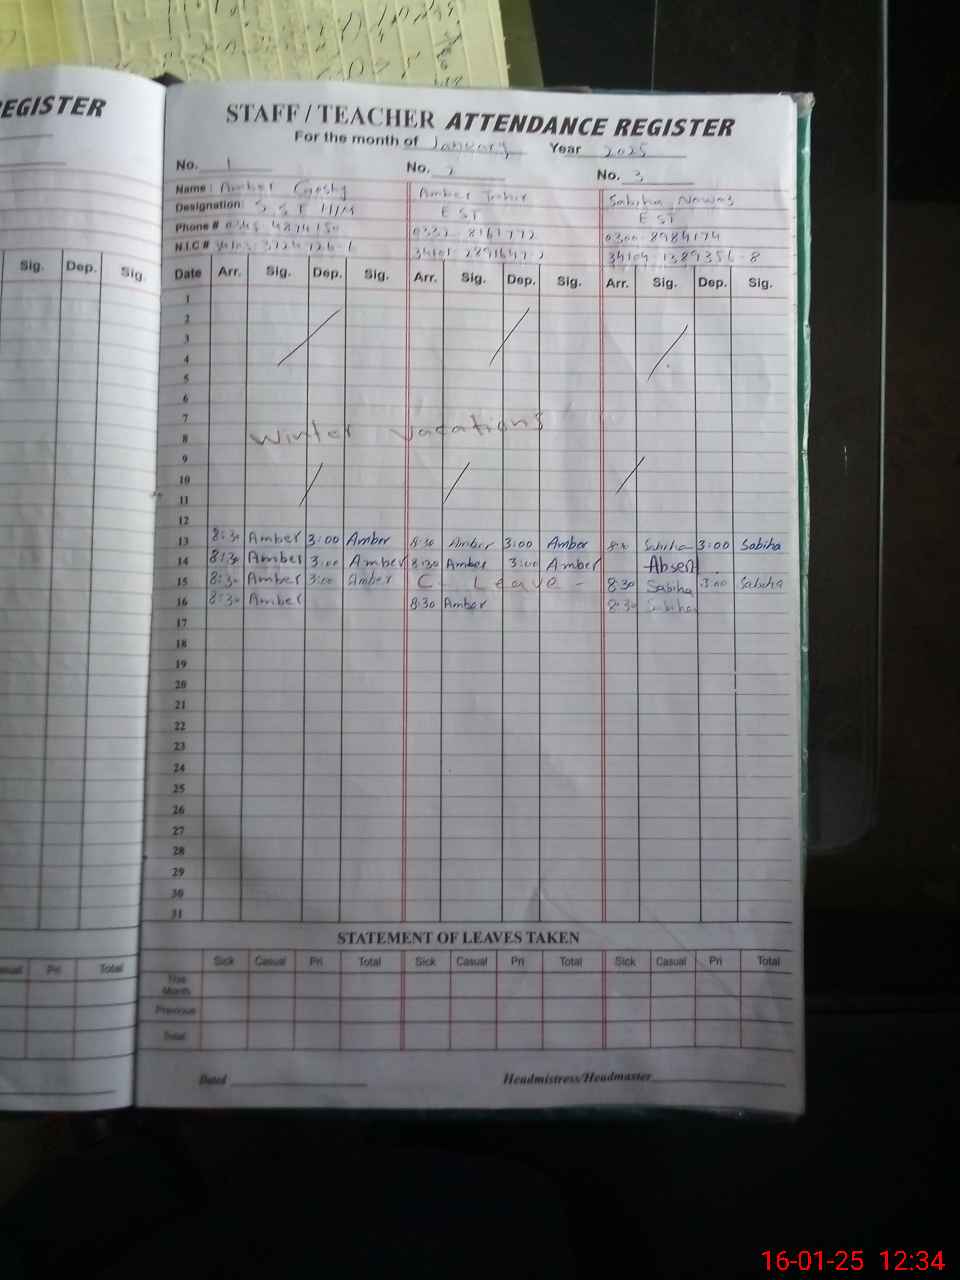 EGISTER
STAFF / TEACHER ATTENDANCE REGISTER
For the month of January Year 2025
No. 1 No. 2 No. 3
Name : Amber Amber Tahir Sabiha Nawaz
Designation: S S E H/M EST EST
Phone # 0332-8161772 0300-8984174
N.I.C #
Sig. Dep. Sig. Date Arr. Sig. Dep. Sig. Arr. Sig. Dep. Sig. Arr. Sig. Dep. Sig.
1
2
3
4
5
6
7
8 Winter Vacations
9
10
11
12
13 8:30 Amber 3:00 Amber 8:30 Amber 3:00 Amber Sabiha 3:00 Sabiha
14 8:30 Amber 3:00 Amber 8:30 Amber 3:00 Amber Absen
15 8:30 Amber 3:00 Amber C. Leave - 8:30 Sabiha 3:00 Sabiha
16 8:30 Amber 8:30 Amber 8:30 Sabiha
17
18
19
20
21
22
23
24
25
26
27
28
29
30
31
STATEMENT OF LEAVES TAKEN
Pri Total Sick Casual Pri Total Sick Casual Pri Total Sick Casual Pri Total
This Month
Previous
Total
Dated Headmistress/Headmaster
16-01-25 12:34